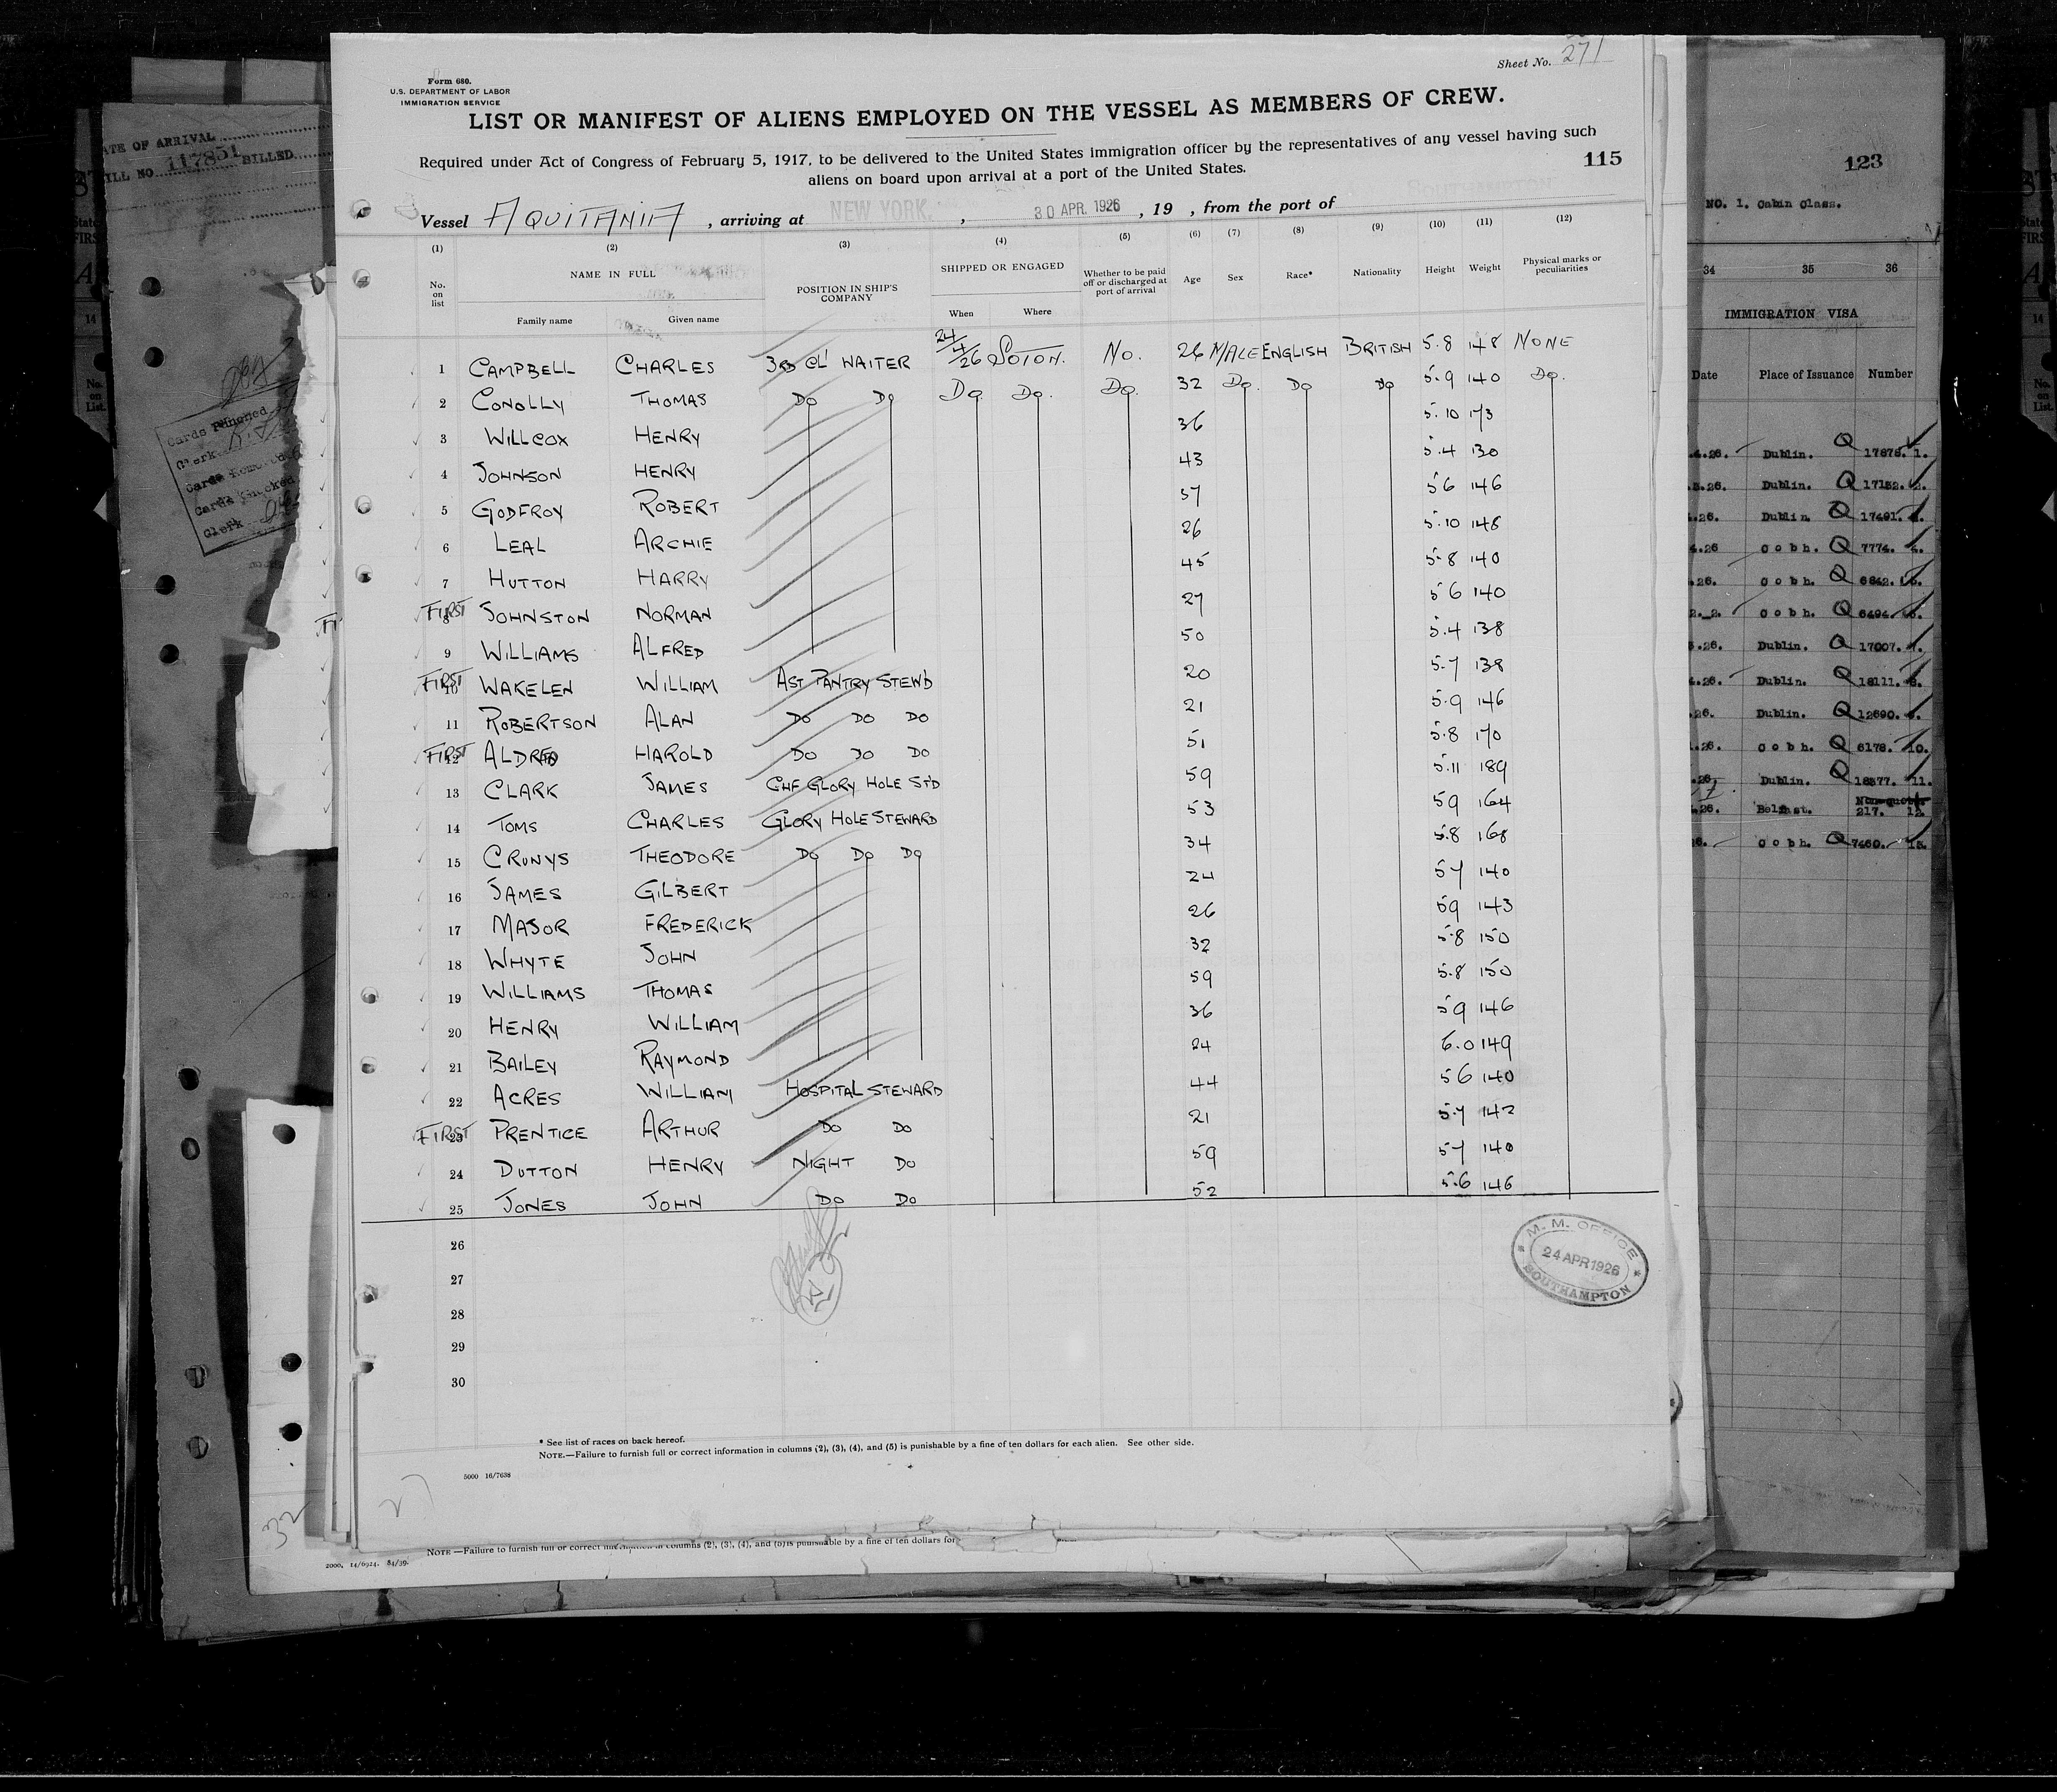 Sheet No. 271
Form 680.
U.S. DEPARTMENT OF LABOR
IMMIGRATION SERVICE
LIST OR MANIFEST OF ALIENS EMPLOYED ON THE VESSEL AS MEMBERS OF CREW.
Required under Act of Congress of February 5, 1917, to be delivered to the United States immigration officer by the representatives of any vessel having such
aliens on board upon arrival at a port of the United States.
115
Vessel AQUITANIA, arriving at NEW YORK. , 30 APR. 1926, 19 , from the port of
(1) (2) (3) (4) (5) (6) (7) (8) (9) (10) (11) (12)
No. on list NAME IN FULL POSITION IN SHIP'S COMPANY SHIPPED OR ENGAGED Whether to be paid off or discharged at port of arrival Age Sex Race* Nationality Height Weight Physical marks or peculiarities
Family name Given name When Where
1 CAMPBELL CHARLES 3RD CL WAITER 24/4/26 SOTON. NO. 26 MALE ENGLISH BRITISH 5.8 148 NONE
2 CONOLLY THOMAS DO DO DO DO. DO. 32 DO. DO DO 5.9 140 DO.
3 WILLCOX HENRY 36 5.10 173
4 JOHNSON HENRY 43 5.4 130
5 GODFROY ROBERT 57 56 146
6 LEAL ARCHIE 26 5.10 148
7 HUTTON HARRY 45 5.8 140
FIRST 8 JOHNSTON NORMAN 27 56 140
9 WILLIAMS ALFRED 50 5.4 138
FIRST 10 WAKELEN WILLIAM AST PANTRY STEWD 20 5.7 138
11 ROBERTSON ALAN DO DO DO 21 5.9 146
FIRST 12 HAROLD DO DO DO 51 5.8 170
13 CLARK JAMES CHF GLORY HOLE STD 59 5.11 189
14 TOMS CHARLES GLORY HOLE STEWARD 53 59 164
15 CRUNYS THEODORE DO DO DO 34 5.8 168
16 JAMES GILBERT 24 57 140
17 MAJOR FREDERICK 26 59 143
18 WHYTE JOHN 32 5.8 150
19 WILLIAMS THOMAS 59 5.8 150
20 HENRY WILLIAM 36 59 146
21 BAILEY RAYMOND 24 6.0 149
22 ACRES WILLIAM HOSPITAL STEWARD 44 56 140
FIRST 23 PRENTICE ARTHUR DO DO 21 5.7 142
24 DUTTON HENRY NIGHT DO 59 57 140
25 JONES JOHN DO DO 52 5.6 146
26
27
28
29
30
M. M. OFFICE
24 APR 1926
SOUTHAMPTON
* See list of races on back hereof.
NOTE.—Failure to furnish full or correct information in columns (2), (3), (4), and (5) is punishable by a fine of ten dollars for each alien. See other side.
5000 16/7638
27
32
NOTE.—Failure to furnish full or correct information in columns (2), (3), (4), and (5) is punishable by a fine of ten dollars for
2000. 14/6924. 84/39.
ATE OF ARRIVAL
ILL NO. 117851 BILLED
Cards Punched
Clerk
Cards Removed
Cards Checked
Clerk
123
NO. 1. Cabin Class.
34 35 36
IMMIGRATION VISA
Date Place of Issuance Number
.4.26. Dublin. Q 17878. 1.
.3.26. Dublin. Q 17152. 2.
.26. Dublin. Q 17491.
4.26 Cobh. Q 7774. 4.
.26. Cobh. Q 6642.
Cobh. Q 6494.
.26. Dublin. Q 17007.
4.26. Dublin. Q 18111.
26. Dublin. Q 12690.
.26. Cobh. Q 6178. 10.
.26. Dublin. Q 18377. 11.
.26. Belfast. Non-quota 217. 12.
26. Cobh. Q 7460. 13.